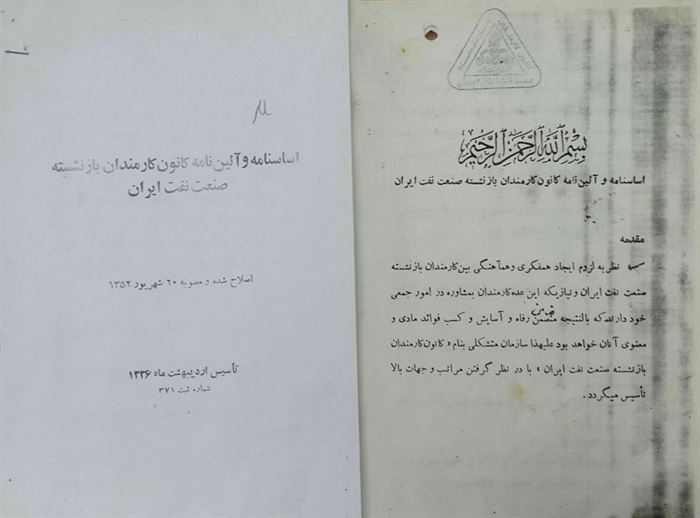 اساسنامه و آئین نامه کانون کارمندان بازنشسته
صنعت نفت ایران
اصلاح شده و مصوبه ۲۰ شهریور ۱۳۵۲
تأسیس اردیبهشت ماه ۱۳۳۶
شماره ثبت ۳۷۱
بسم الله الرحمن الرحیم
اساسنامه و آئین نامه کانون کارمندان بازنشسته صنعت نفت ایران
مقدمه
نظر به لزوم ایجاد همفکری و همآهنگی بین کارمندان بازنشسته
صنعت نفت ایران و نیازیکه این عده کارمندان بمشاوره در امور جمعی
خود دارند که بالنتیجه متضمن رفاه و آسایش و کسب فوائد مادی و
معنوی آنان خواهد بود علیهذا سازمان متشکلی بنام « کانون کارمندان
بازنشسته صنعت نفت ایران » با در نظر گرفتن مراتب و جهات بالا
تأسیس میگردد .